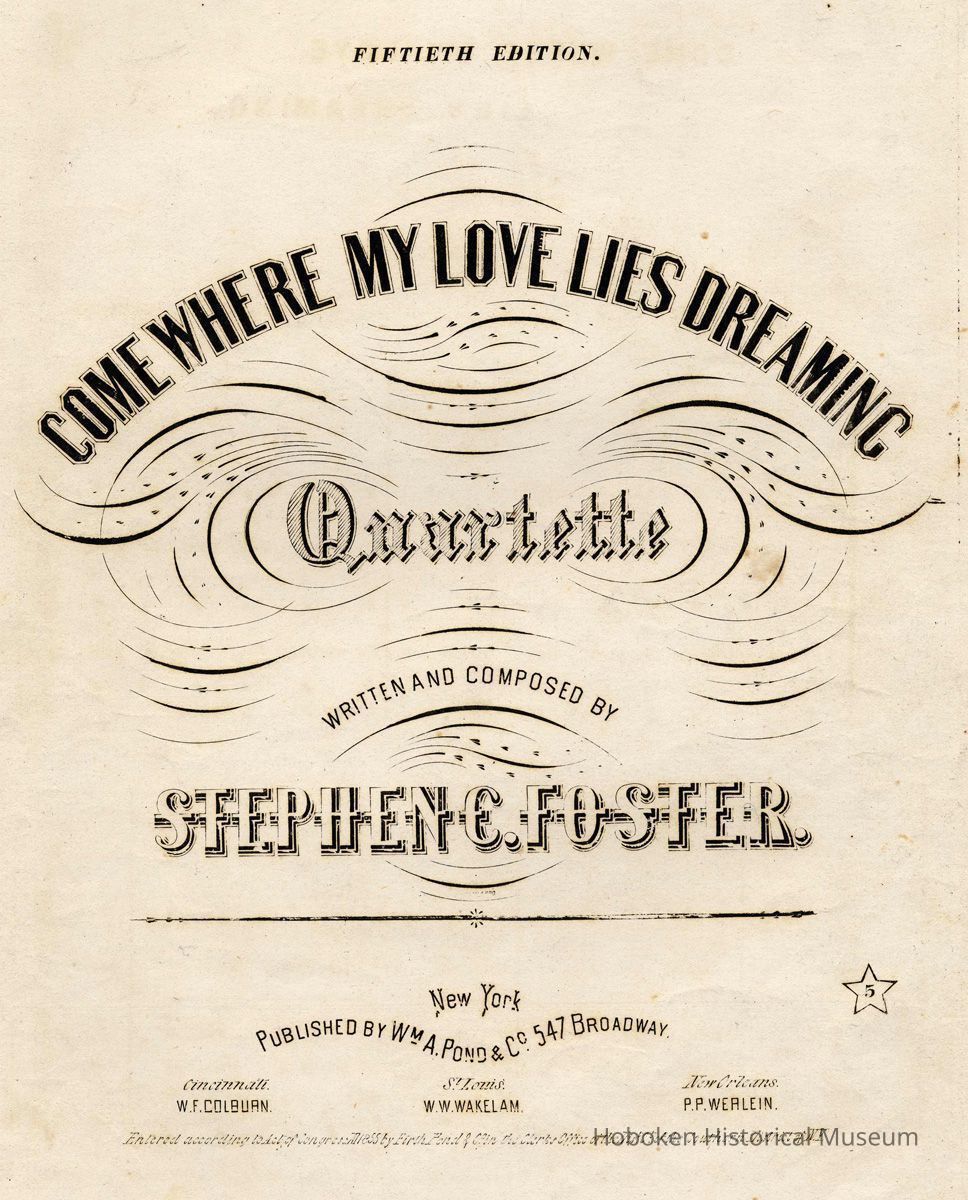 FIFTIETH EDITION.
COME WHERE MY LOVE LIES DREAMING
Quartette
WRITTEN AND COMPOSED BY
STEPHEN C. FOSTER.
5
New York
PUBLISHED BY WM A. POND & CO. 547 BROADWAY.
Cincinnati. St Louis. New Orleans.
W.F. COLBURN. W.W. WAKELAM. P.P. WERLEIN.
Entered according to Act of Congress 1855 by Firth, Pond & Co in the Clerks Office
Hoboken Historical Museum